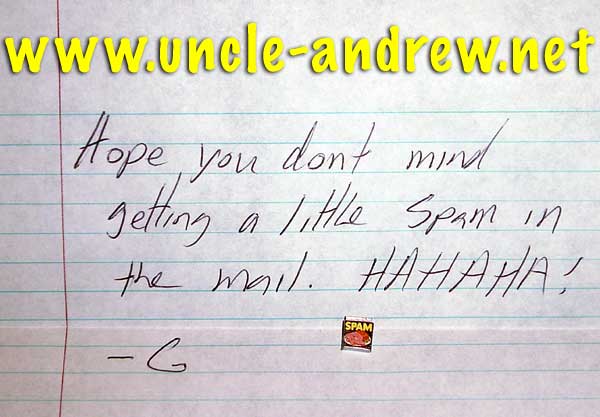 www.uncle-andrew.net
Hope you dont mind
getting a little Spam in
the mail. HAHAHA!
SPAM
– G